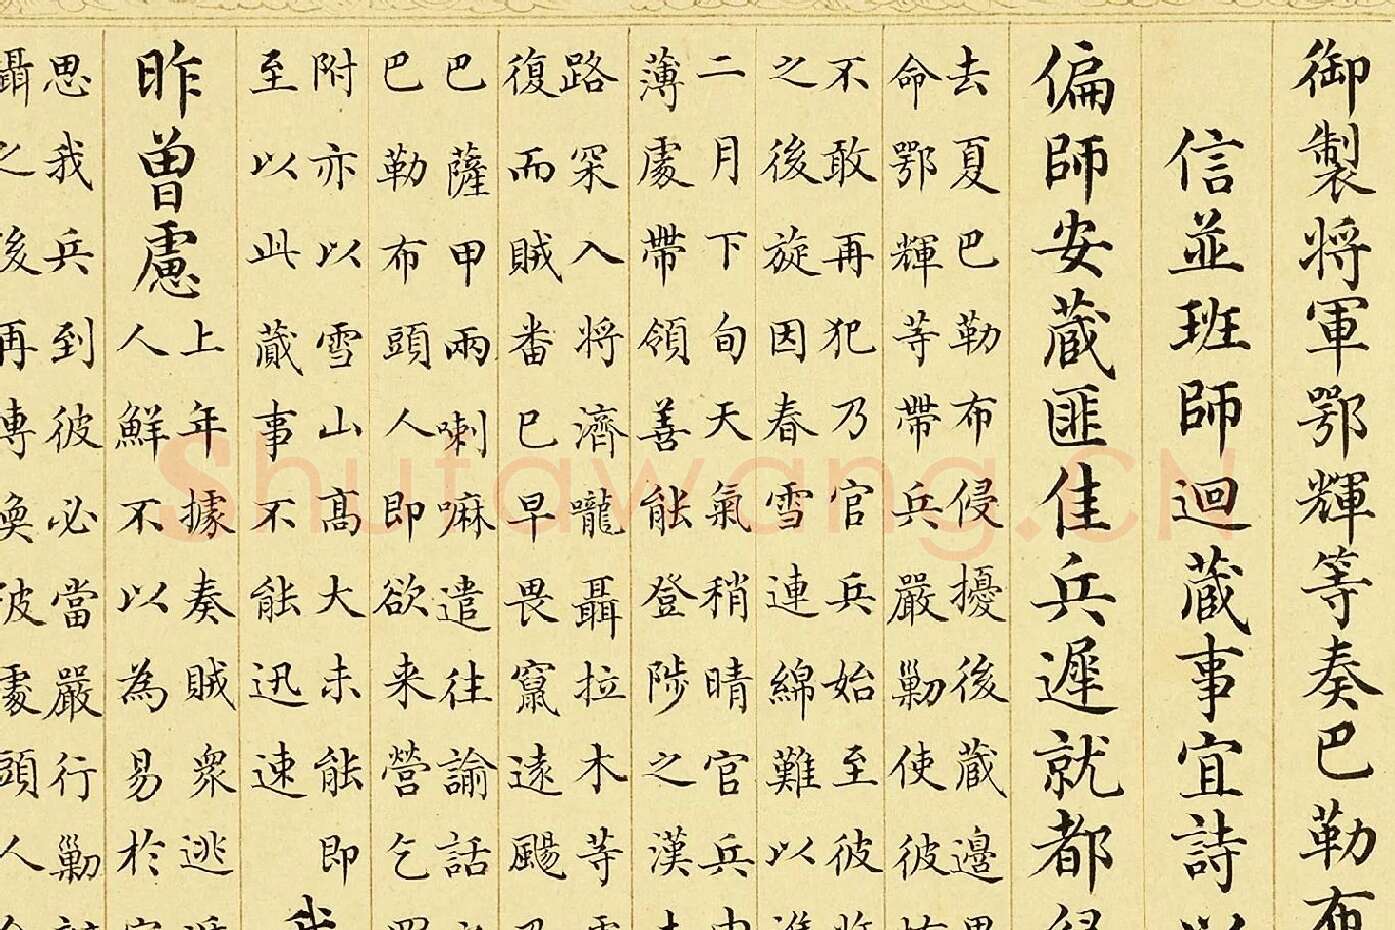 御製将軍鄂輝等奏巴勒布
信並班師迴藏事宜詩以
偏師安藏匪佳兵遲就都
去夏巴勒布侵擾後藏邊
命鄂輝等帶兵嚴勦使彼
不敢再犯乃官兵始至彼
之後旋因春雪連綿難以
二月下旬天氣稍晴官兵
薄處帶領善能登陟之漢
路深入将濟嚨聶拉木等
復而賊畨巳早畏竄遠颺
巴薩甲兩喇嘛遣往諭話
巴勒布頭人即欲来營乞
附亦以雪山高大未能即
至以此藏事不能迅速
昨曽慮
上年據奏賊衆逃
人鮮不以為易於
思我兵到彼必當嚴行勦
聶之後再
頭人
Shufawang.CN